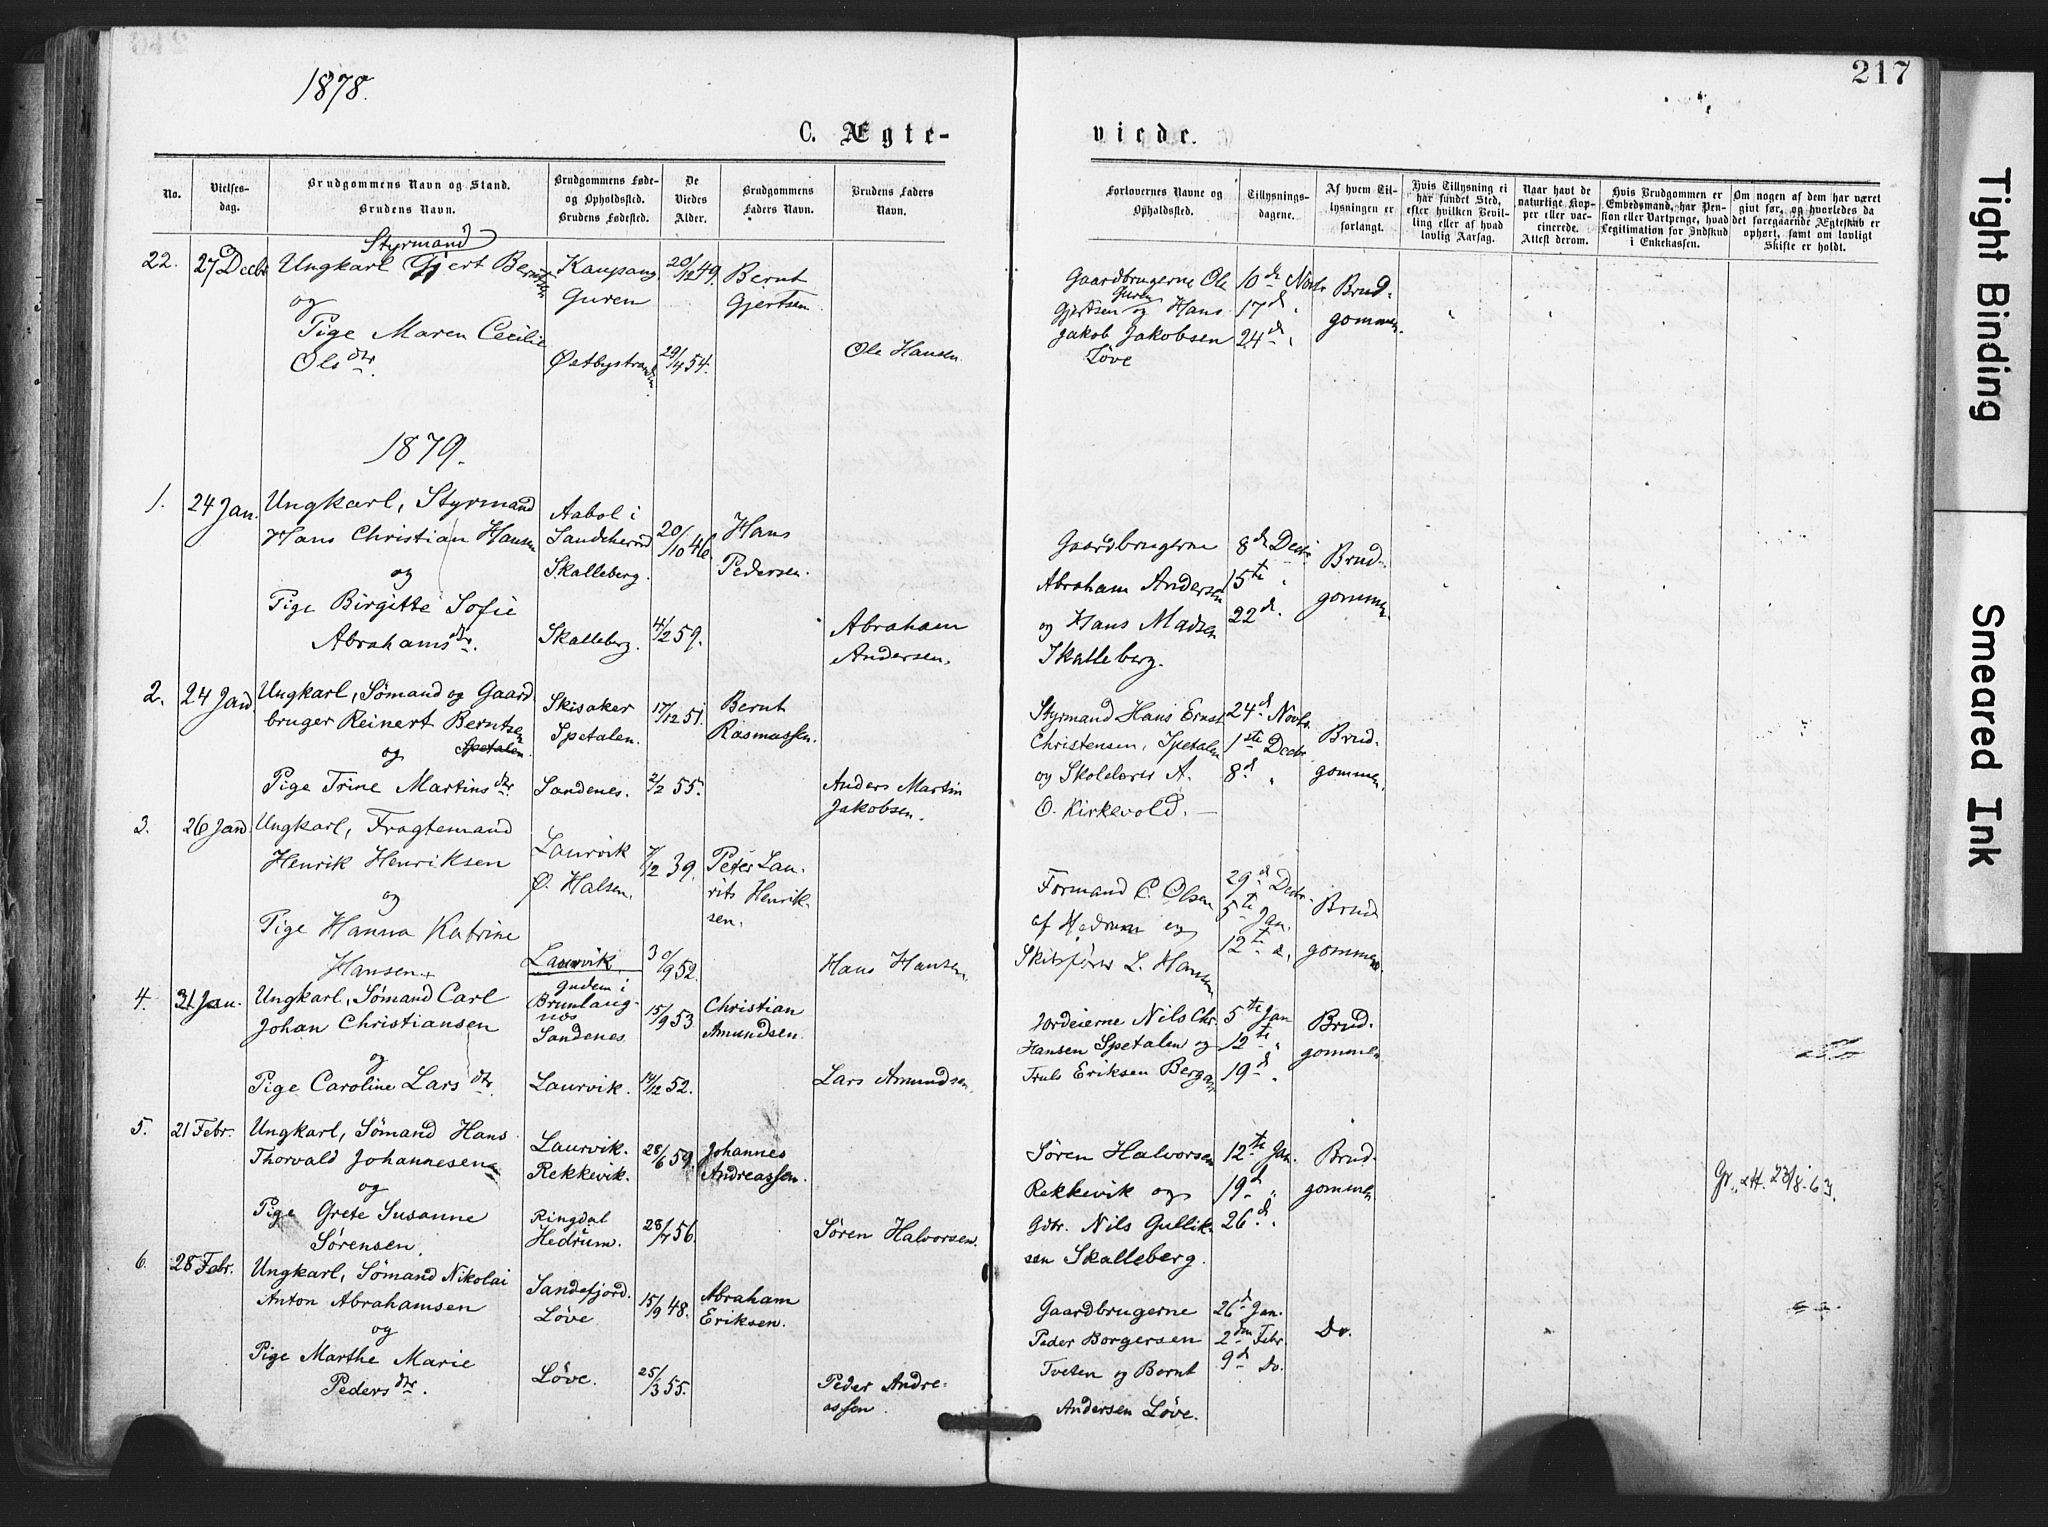 1878.
217
C. Ægte-
viede.
No.
Vielses-
dag.
Brudgommens Navn og Stand.
Brudens Navn.
Brudgommens Føde-
og Opholdssted.
Brudens Fødested.
De
Viedes
Alder.
Brudgommens
Faders Navn.
Brudens Faders
Navn.
Forlovernes Navne og
Opholdssted.
Tillysnings-
dagene.
Af hvem Til-
lysningen er
forlangt.
Hvis Tillysning ei
har fundet Sted,
efter hvilken Bevil-
ling eller af hvad
lovlig Aarsag.
Naar havt de
naturlige Kop-
per eller vac-
cinerede.
Attest derom.
Hvis Brudgommen er
Embedsmand, har Pen-
sion eller Vartpenge, hvad
Legitimation for Indskud
i Enkekassen.
Om nogen af dem har været
givt før, og hvorledes da
det foregaaende Ægteskab er
ophørt, samt om lovligt
Skifte er holdt.
22.
27 Decbr
Styrmand
Ungkarl Gjert Berntsen
og
Pige Maren Cecilie
Olsdtr.
Kaupang
Guren
Østbystranden
20/12 49.
29/4 54.
Bernt
Gjertsen.
Ole Hansen.
Gaardbrugerne Ole
Guren
Gjertsen og Hans
Jakob Jakobsen
Løve
10de Novbr
17d "
24d "
Brud-
gommen.
1879.
1.
24 Jan.
Ungkarl, Styrmand
Hans Christian Hansen
og
Pige Birgitte Sofie
Abrahamsdtr.
Aabol i
Sandeherred
Skalleberg.
Skalleberg.
20/10 46.
4/2 59.
Hans
Pedersen.
Abraham
Andersen.
Gaardbrugerne
Abraham Andersen
og Hans Madsen
Skalleberg.
8de Decbr
15te "
22d.
Brud-
gommen
2.
24 Jan
Ungkarl, Sømand og Gaard-
bruger Reinert Berntsen
og Spetalen.
Pige Trine Martinsdtr.
Skisaker
Spetalen.
Sandenes.
17/12 51.
2/2 55.
Bernt
Rasmussen.
Anders Martin
Jakobsen.
Styrmand Hans Ernst
Christensen, Spetalen
og Skolelærer A.
O. Kirkevold. —
24d Novbr.
1ste Decbr
8d "
Brud-
gommen.
3.
26 Jan.
Ungkarl, Fragtemand
Henrik Henriksen
og
Pige Hanna Katrine
Hansen.
Laurvik
Ø. Halsen.
Laurvik.
7/12 39.
30/9 52.
Peter Lau-
rits Henrik-
sen.
Hans Hansen
Formand C. Olsen
af Hedrum og
Skibsfører L. Hansen
29d Decbr.
5te Jan.
12te ".
Brud
gommen.
4.
31 Jan.
Ungkarl, Sømand Carl
Johan Christiansen
og
Pige Caroline Larsdtr.
Gudem i
Brunlaug-
næs
Sandenes
Laurvik.
15/9 53.
14/12 52.
Christian
Amundsen.
Lars Amundsen
Hansen Spetalen og
Truls Eriksen Bergan
5te Jan
12te "
19d "
Brud-
gommen
5.
21 Febr.
Ungkarl, Sømand Hans
Thorvald Johannesen
og
Pige Grete Susanne
Sørensen.
Laurvik.
Rekkevik.
Ringdal
Hedrum.
28/6 59.
28/7 56.
Johannes
Andreassen.
Søren Halvorsen.
Søren Halvorsen
Rekkevik og
Gdbr. Nils Gullik-
sen Skalleberg.
12te Jan.
19d "
26d "
Brud-
gommen
6.
28 Febr.
Ungkarl, Sømand Nikolai
Anton Abrahamsen
og
Pige Marthe Marie
Pedersdtr.
Sandefjord.
Løve
Løve.
15/9 48.
25/3 55.
Abraham
Eriksen.
Peder Andre-
assen.
Gaardbrugerne
Peder Borgersen
Tveten og Bernt
Andersen Løve.
26d Jan.
2den Febr.
9d Do.
Do.
Tight Binding
Smeared Ink